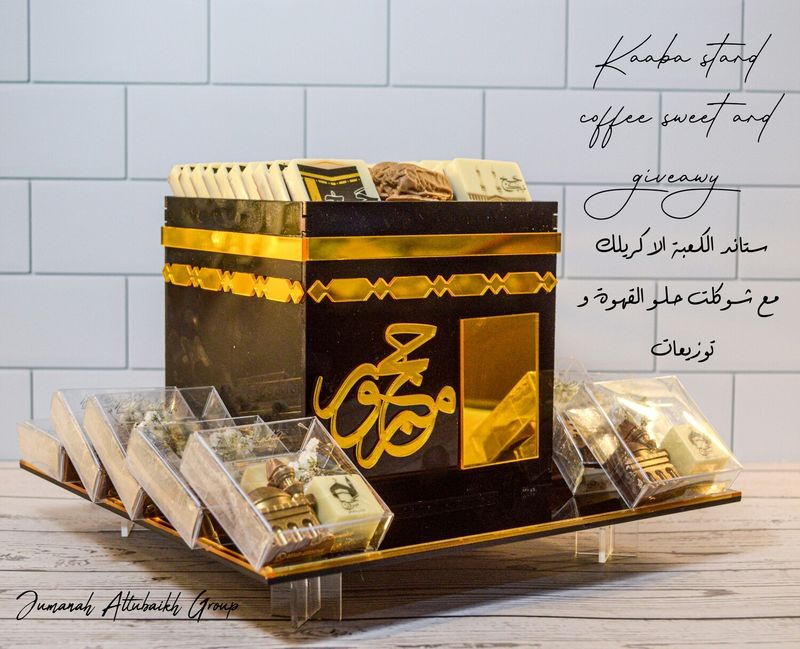 Kaaba stand
coffee sweet and
giveawy
ستاند الكعبة الاكريلك
مع شوكلت حلو القهوة و
توزيعات
حج
مبرور
Jumanah Altubaikh Group